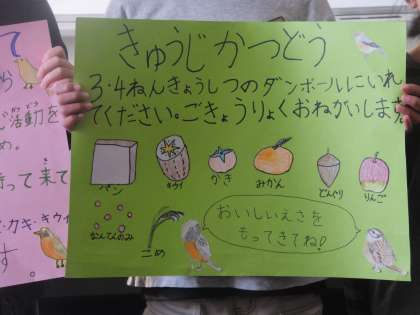 て
ら
活動を
め。
持って来て
・カキ・キウイ
す。
きゅうじかつどう
3・4ねんきょうしつのダンボールにいれ
てください。ごきょうりょくおねがいします。
パン
キウイ
かき
みかん
どんぐり
りんご
なんてんのみ
こめ
おいしいえさを
もってきてね!